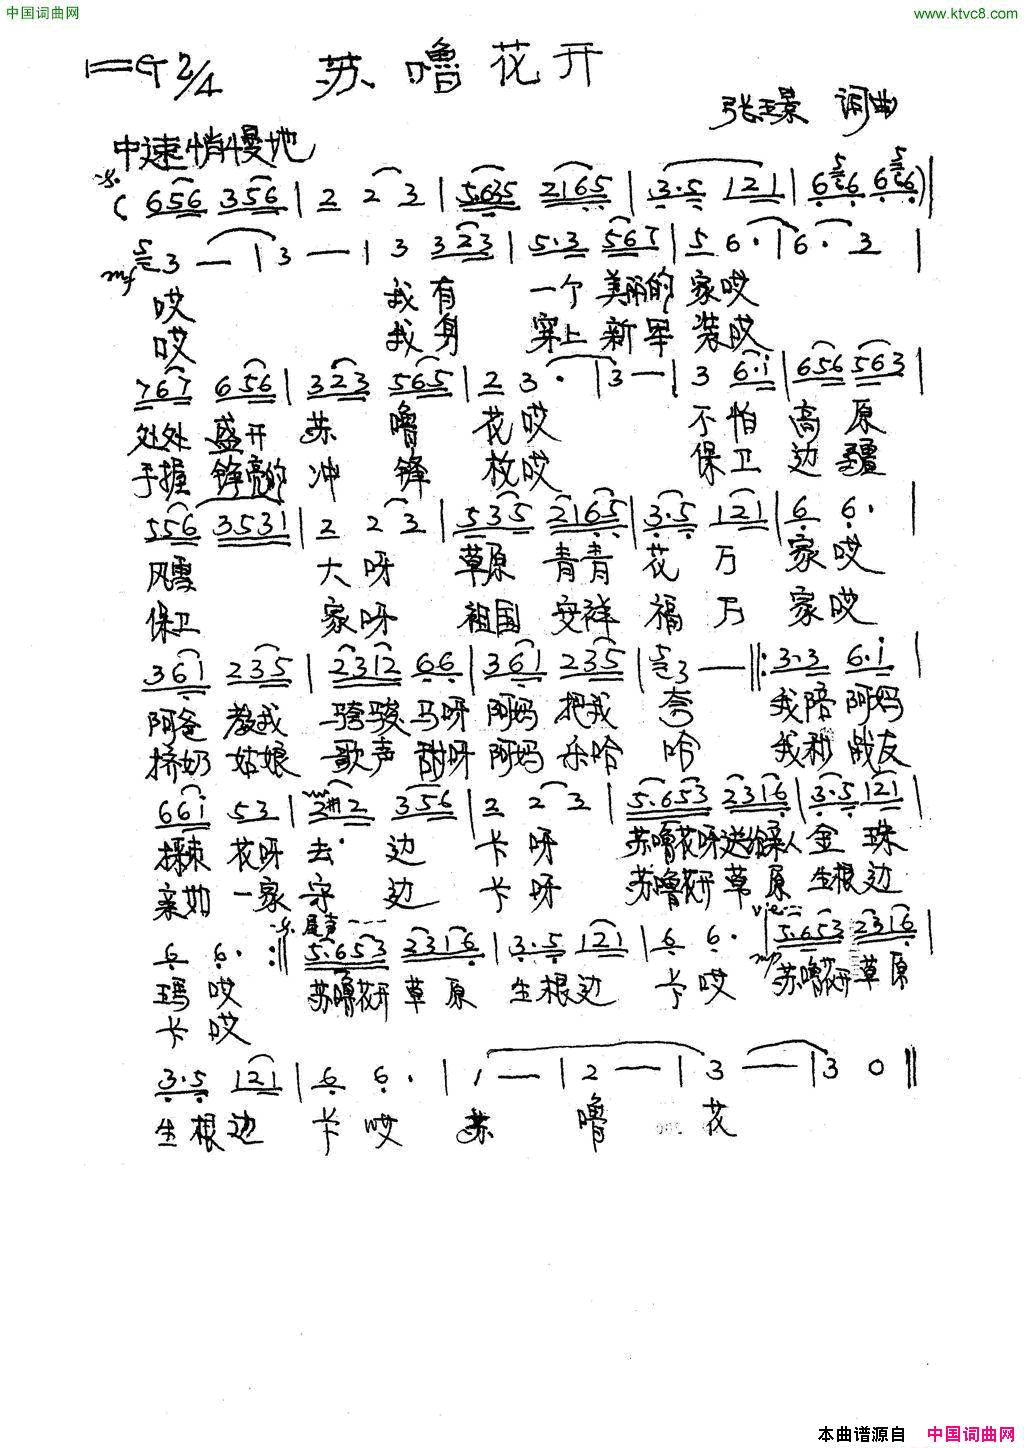 中国词曲网
www.ktvc8.com
1=G 2/4 苏噜花开
张玉景 词曲
中速悄慢地
( 656 356 | 2 2 3 | 5.635 2165 | 3.5 121 | 6 6 6 6) ||
mf 3 — | 3 — | 3 323 | 5.3 567 | 5 6. | 6. 3 |
哎 我有 一个 美丽的 家哎
哎 我身 穿上 新军 装哎
767 656 | 323 565 | 2 3. | 3 — | 3 6.i | 656 563 |
处处 盛开 苏 噜 花哎 不怕 高原
手握 铮亮的 冲 锋 枚哎 保卫 边疆
556 3531 | 2 2 3 | 535 2165 | 3.5 121 | 6 6. |
风雪 大呀 草原 青青 花万 家哎
保卫 家呀 祖国 安祥 福万 家哎
36i 235 | 2312 66 | 361 235 | 3 — ||: 3.3 6.i |
阿爸 教我 骑骏马呀 阿妈 把我 夸 我陪 阿妈
挤奶 姑娘 歌声 甜呀 阿妈 乐哈 哈 我和 战友
66i 53 | 2 2 356 | 2 2 3 | 5.653 2316 | 3.5 121 |
花呀 去 边 卡呀 苏噜花呀送给亲人 金珠
亲如 一家 守 边 卡呀 苏噜花开 草原 生根边
6 6. :|| 5.653 2316 | 3.5 121 | 6 6. | 5.653 2316 |
尾声
mp
玛哎 苏噜花开 草原 生根边 卡哎 苏噜花开 草原
卡哎
3.5 121 | 6 6. | 1 — | 2 — | 3 — | 3 0 ||
生根边 卡哎 苏 噜 花
本曲谱源自 中国词曲网